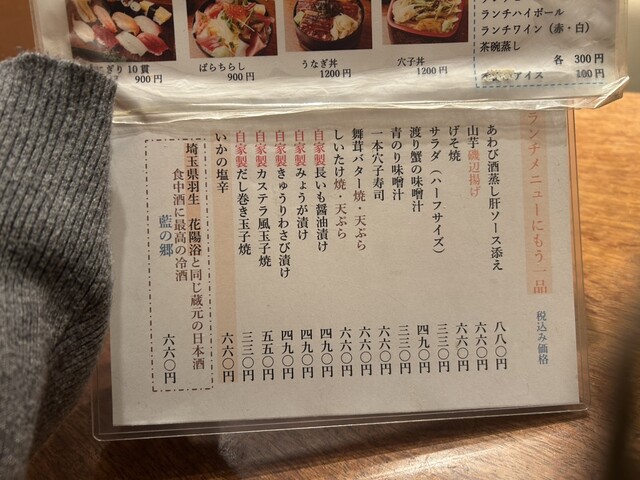 ぎり10貫
900円
ばらちらし
900円
うなぎ丼
1200円
穴子丼
1200円
ランチハイボール
ランチワイン（赤・白）
茶碗蒸し
各 300円
アイス 100円
ランチメニューにもう一品 税込み価格
あわび酒蒸し肝ソース添え 八八〇円
山芋磯辺揚げ 六六〇円
げそ焼 六六〇円
サラダ（ハーフサイズ） 三三〇円
渡り蟹の味噌汁 四九〇円
青のり味噌汁 三三〇円
一本穴子寿司 六六〇円
舞茸バター焼・天ぷら 六六〇円
しいたけ焼・天ぷら 六六〇円
自家製長いも醤油漬け 四九〇円
自家製みょうが漬け 四九〇円
自家製きゅうりわさび漬け 四九〇円
自家製カステラ風玉子焼 五五〇円
自家製だし巻き玉子焼 三三〇円
いかの塩辛 六六〇円
埼玉県羽生 花陽浴と同じ蔵元の日本酒
食中酒に最高の冷酒
藍の郷 六六〇円